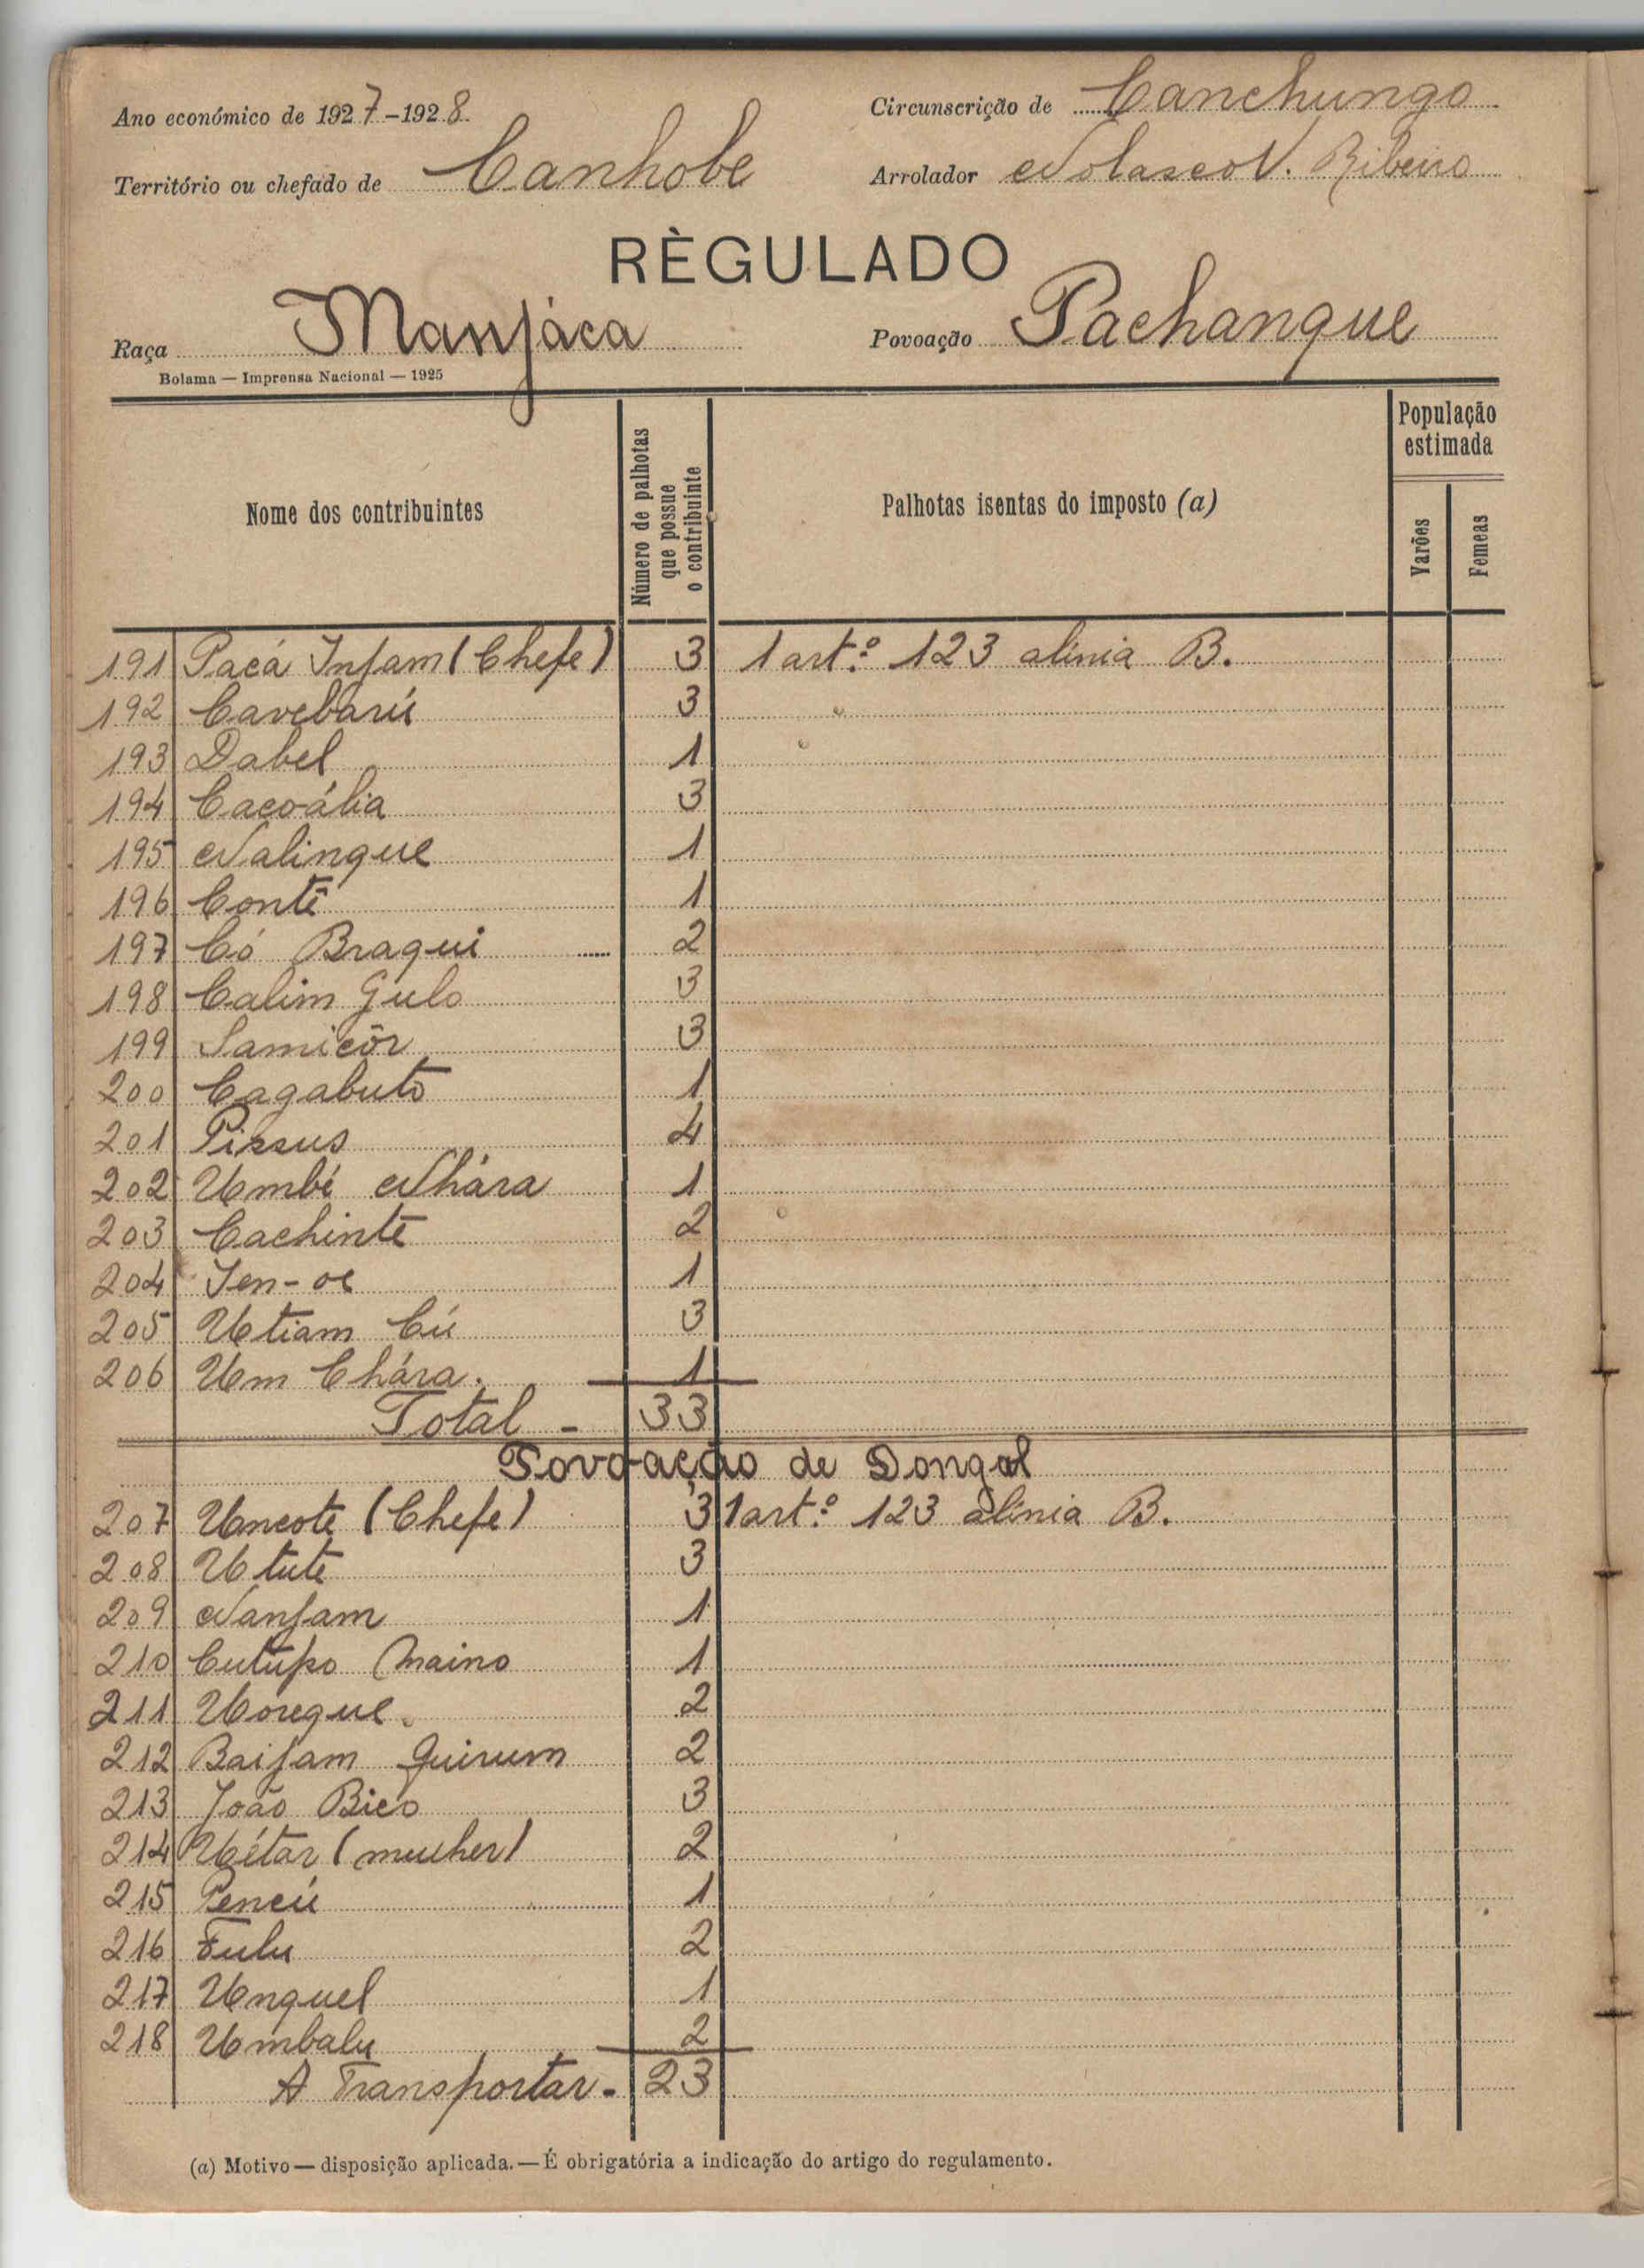 Ano económico de 1927-1928
Circunscrição de Canchungo
Território ou chefado de Canhobe
Arrolador Nolasco V. Ribeiro
RÈGULADO
Raça Manjáca
Povoação Pachanque
Bolama — Imprensa Nacional — 1925
Nome dos contribuintes
Número de palhotas que possue o contribuinte
Palhotas isentas do imposto (a)
População estimada
Varões
Femeas
191 Pacá Injam (Chefe) 3 1 art.º 123 alinia B.
192 Cavebarú 3
193 Dabel 1
194 Cacoália 3
195 Nalinque 1
196 Contê 1
197 Có Braqui 2
198 Calim Gulo 3
199 Samicôr 3
200 Cagabuto 1
201 Pissus 4
202 Umbé Nhára 1
203 Cachintê 2
204 Jen-oe 1
205 Utiam Cú 3
206 Um Chára. 1
Total - 33
Povoação de Dongal
207 Uncote (Chefe) 3 1 art.º 123 alinia B.
208 Utute 3
209 Nanjam 1
210 Cutupo Maino 1
211 Uoregue. 2
212 Baijam Quirum 2
213 João Bico 3
214 Uétar (mulher) 2
215 Pencú 1
216 Fulu 2
217 Unquel 1
218 Umbalu 2
A Transportar - 23
(a) Motivo — disposição aplicada. — É obrigatória a indicação do artigo do regulamento.